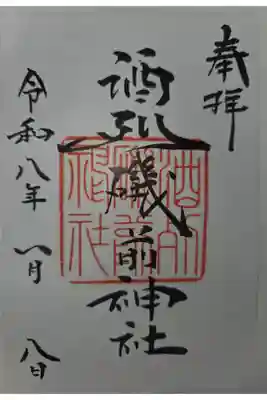 奉拝
酒列磯前神社
令和八年八月八日
酒列
磯前
神社